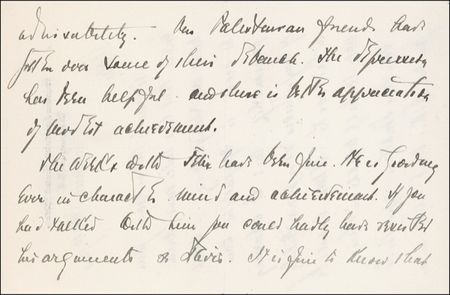 advisability. Our Palestinian friends have
gotten over some of their debauch. The depression
has been helpful and there is better appreciation
of modest achievement.
The weeks with Felix have been fine. He is growing
ever in character, mind and achievement. If you
had talked with him you could hardly have resisted
his arguments as I did. It is fine to know that